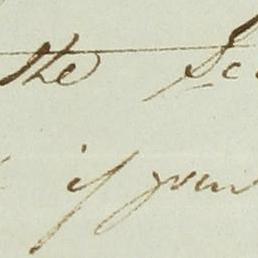 the Sc
if your